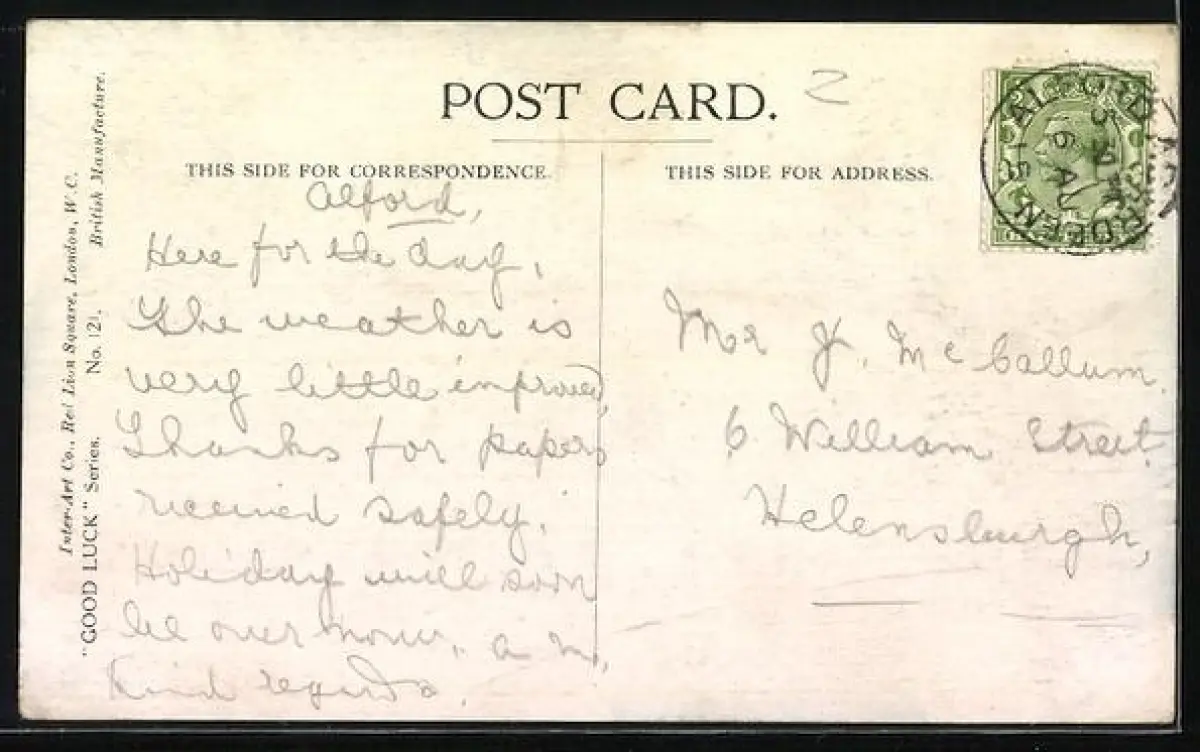 POST CARD.
2
THIS SIDE FOR CORRESPONDENCE.
Alford,
Here for the day,
The weather is
very little improved,
Thanks for papers
received safely.
Holiday will soon
be over now. a m,
Kind regards.
THIS SIDE FOR ADDRESS.
Mr J. McCallum.
6 William Street
Helensburgh,
ALFORD
ABERDEEN
6 AU
15
Inter-Art Co., Red Lion Square, London, W.C.
"GOOD LUCK" Series. No. 121. British Manufacture.